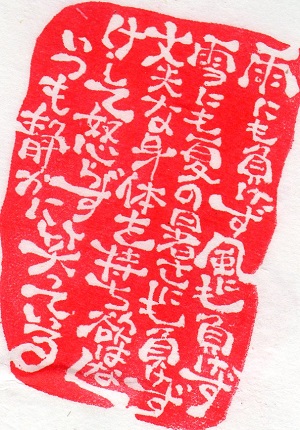 雨にも負けず風にも負けず
雪にも夏の暑さにも負けず
丈夫な身体を持ち欲はな
けして怒らず
いつも静かに笑っている